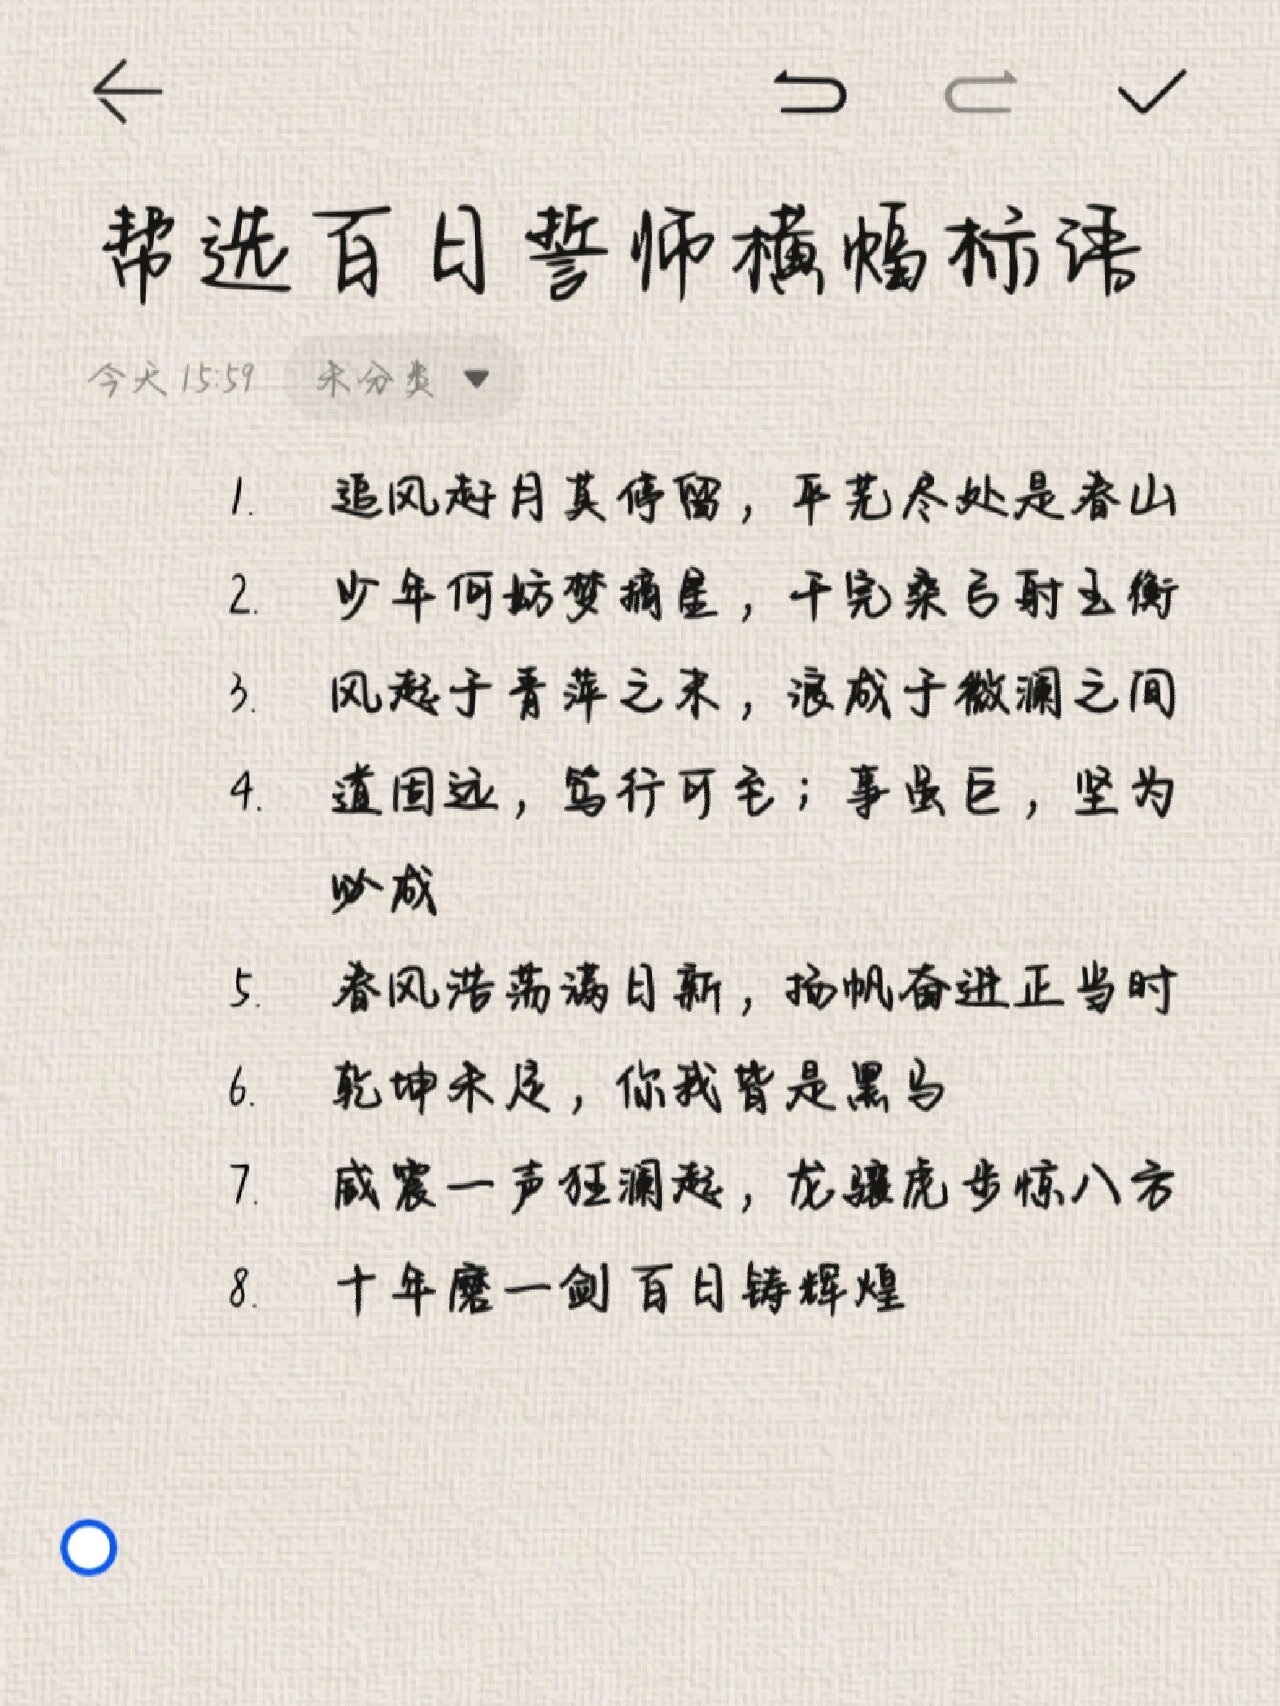 帮选百日誓师横幅标语
今天 15:59 未分类
1. 追风赶月莫停留，平芜尽处是春山
2. 少年何妨梦摘星，千完桑弓射玉衡
3. 风起于青萍之末，浪成于微澜之间
4. 道固远，笃行可至；事虽巨，坚为
必成
5. 春风浩荡满目新，扬帆奋进正当时
6. 乾坤未定，你我皆是黑马
7. 威震一声狂澜起，龙骧虎步惊八方
8. 十年磨一剑 百日铸辉煌